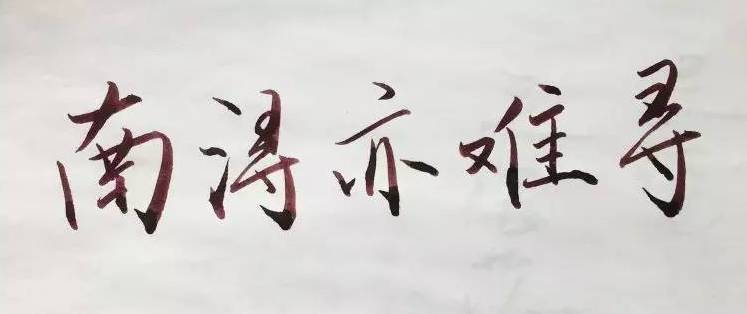 南浔亦难寻